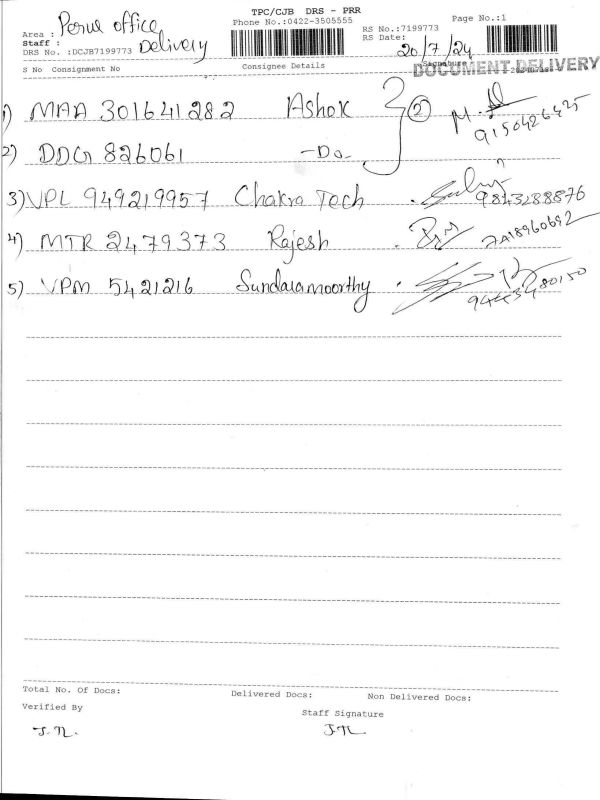 TPC/CJB DRS - PRR
Phone No.:0422-3505555
Page No.:1
Area : Perur office
RS No.:7199773
Staff :
RS Date: 20/7/24
DRS No. :DCJB7199773 Delivery
S No Consignment No Consignee Details Signature
DOCUMENT DELIVERY
1) MAA 301641282 Ashok ② M.
9150426425
2) DDG 826061 -Do-
3) VPL 949219957 Chakra Tech 9843288876
4) MTR 2479373 Rajesh 7418960692
5) VPM 5421216 Sundaramoorthy 9443480150
Total No. Of Docs: Delivered Docs: Non Delivered Docs:
Verified By Staff Signature
J.N. J.N.